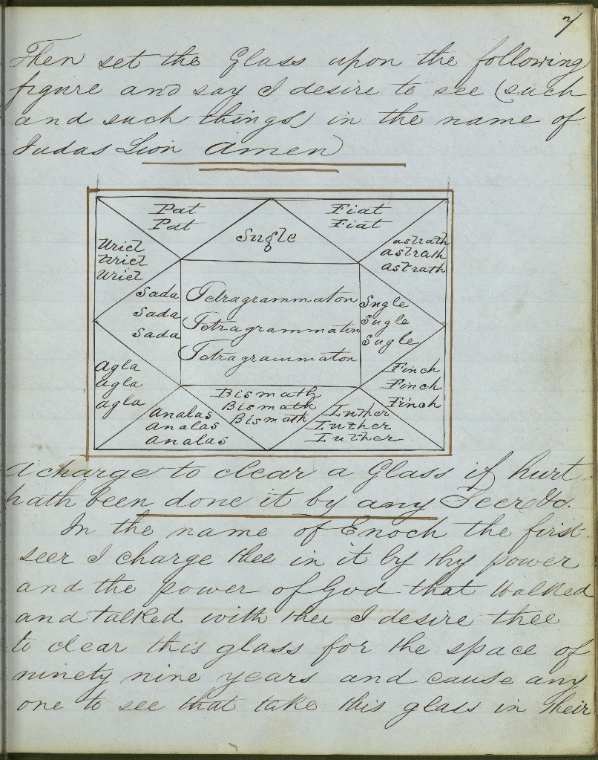 7
Then set the Glass upon the following
figure and say I desire to see (such
and such things) in the name of
Judas Lion Amen
Pat
Pat
Fiat
Fiat
Sugle
Uriel
Uriel
Uriel
astrath
astrath
astrath
Sada
Sada
Sada
Tetragrammaton
Tetragrammaton
Tetragrammaton
Sugle
Sugle
Sugle
agla
agla
agla
Finch
Finch
Finch
analas
analas
analas
Bismath
Bismath
Bismath
Luther
Luther
Luther
A charge to clear a Glass if hurt
hath been done it by any Seer &c.
In the name of Enoch the first
seer I charge thee in it by thy power
and the power of God that walked
and talked with thee I desire thee
to clear this glass for the space of
ninety nine years and cause any
one to see that take this glass in their